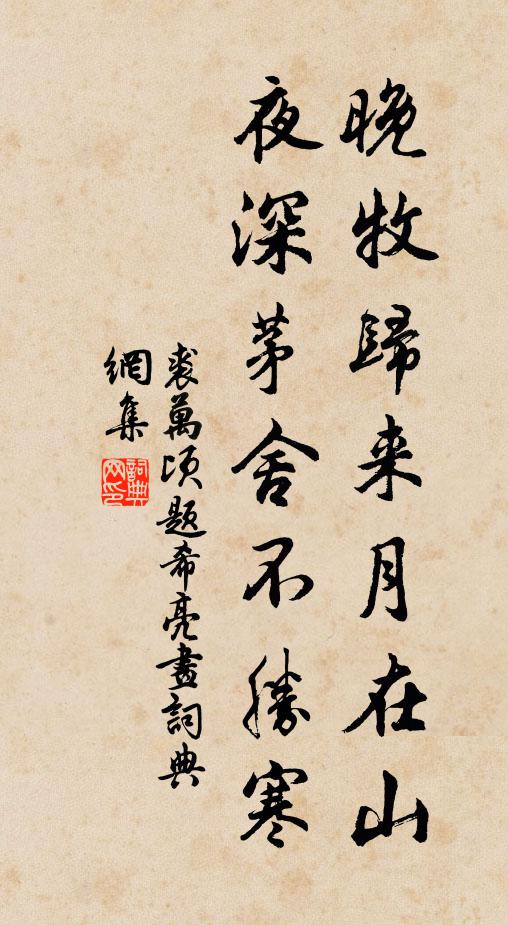 晚牧歸来月在山
夜深茅舍不勝寒
裘萬頃题希亮畫詞典
網集
詞典網印